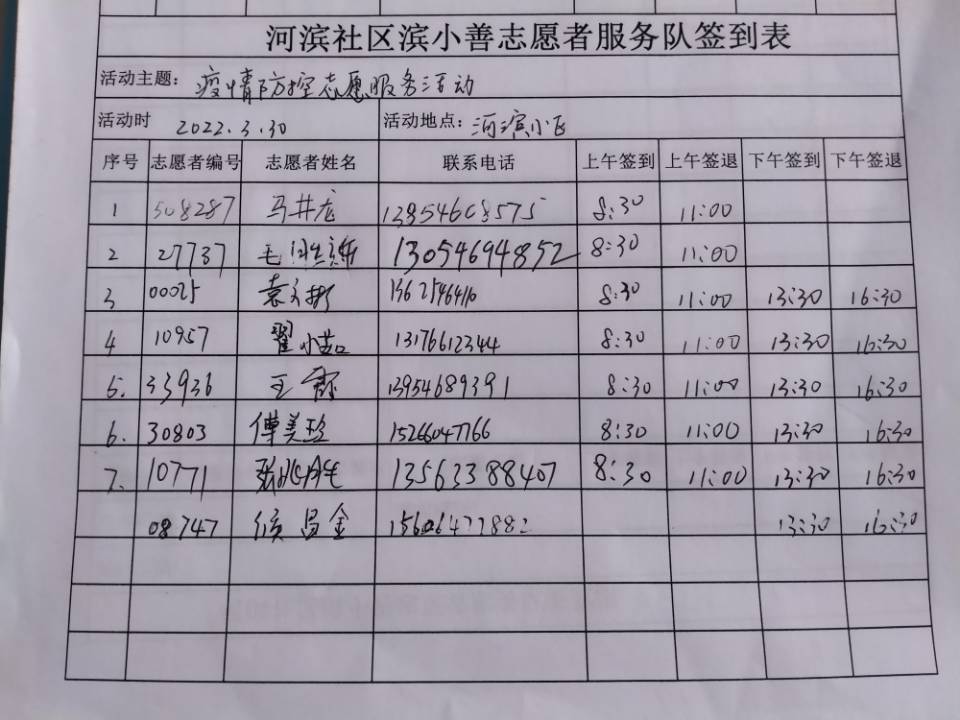 河滨社区滨小善志愿者服务队签到表
活动主题: 疫情防控志愿服务活动
活动时 2022.3.30 活动地点: 河滨小区
序号 志愿者编号 志愿者姓名 联系电话 上午签到 上午签退 下午签到 下午签退
1 508287 马井龙 13954608575 8:30 11:00
2 27737 毛 13054694852 8:30 11:00
3 00025 袁文彬 8:30 11:00 13:30 16:30
4 10957 翟小喆 13176612344 8:30 11:00 13:30 16:30
5. 33936 王霞 13954689391 8:30 11:00 13:30 16:30
6. 30803 傅美珍 15266047766 8:30 11:00 13:30 16:30
7. 10771 张兆胜 13563388407 8:30 11:00 13:30 16:30
08747 侯昌金 15606477882 13:30 16:30